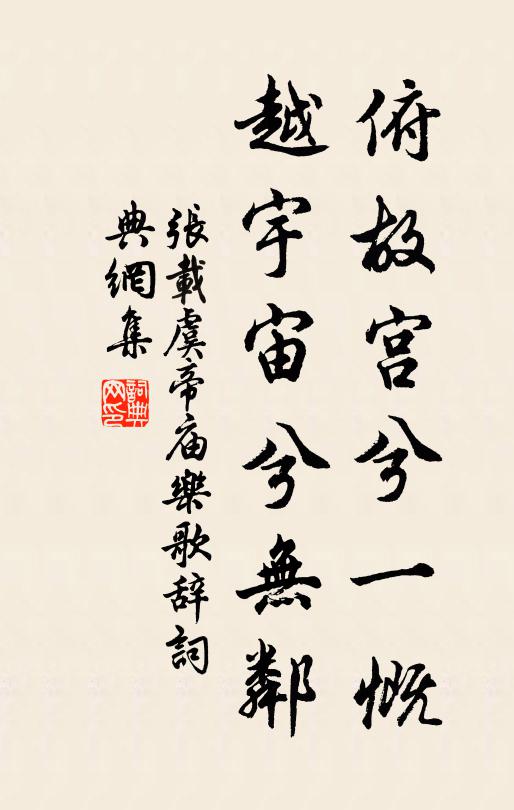 俯故宫兮一慨
越宇宙兮無鄰
張載虞帝庙樂歌辞詞
典網集
詞典
网印